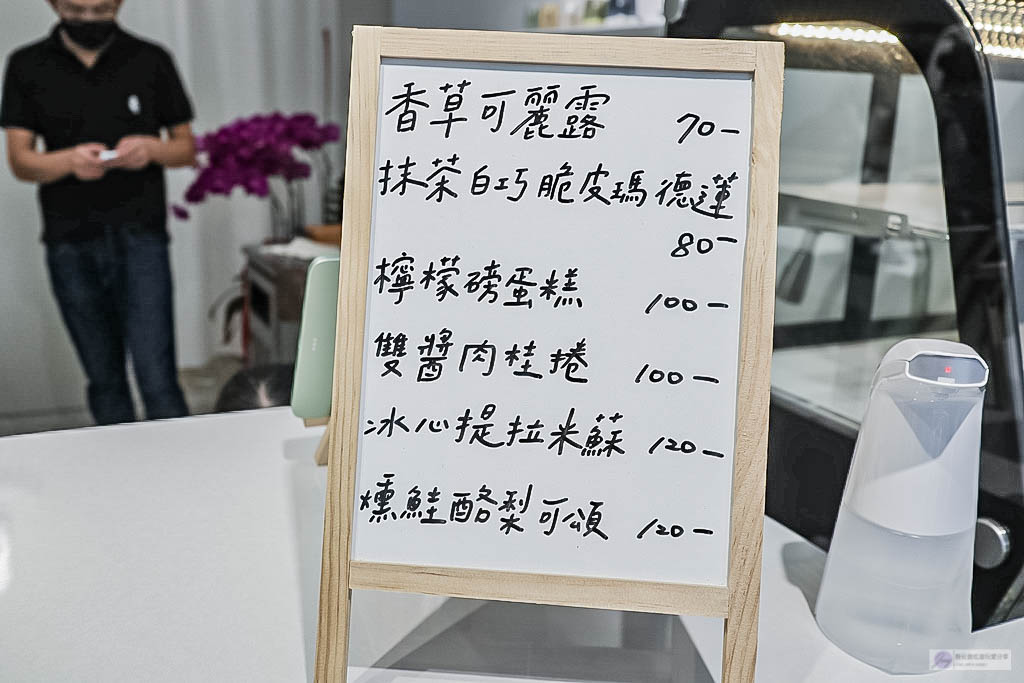 香草可麗露 70-
抹茶白巧脆皮瑪德蓮
80-
檸檬磅蛋糕 100-
雙醬肉桂捲 100-
冰心提拉米蘇 120-
燻鮭酪梨可頌 120-